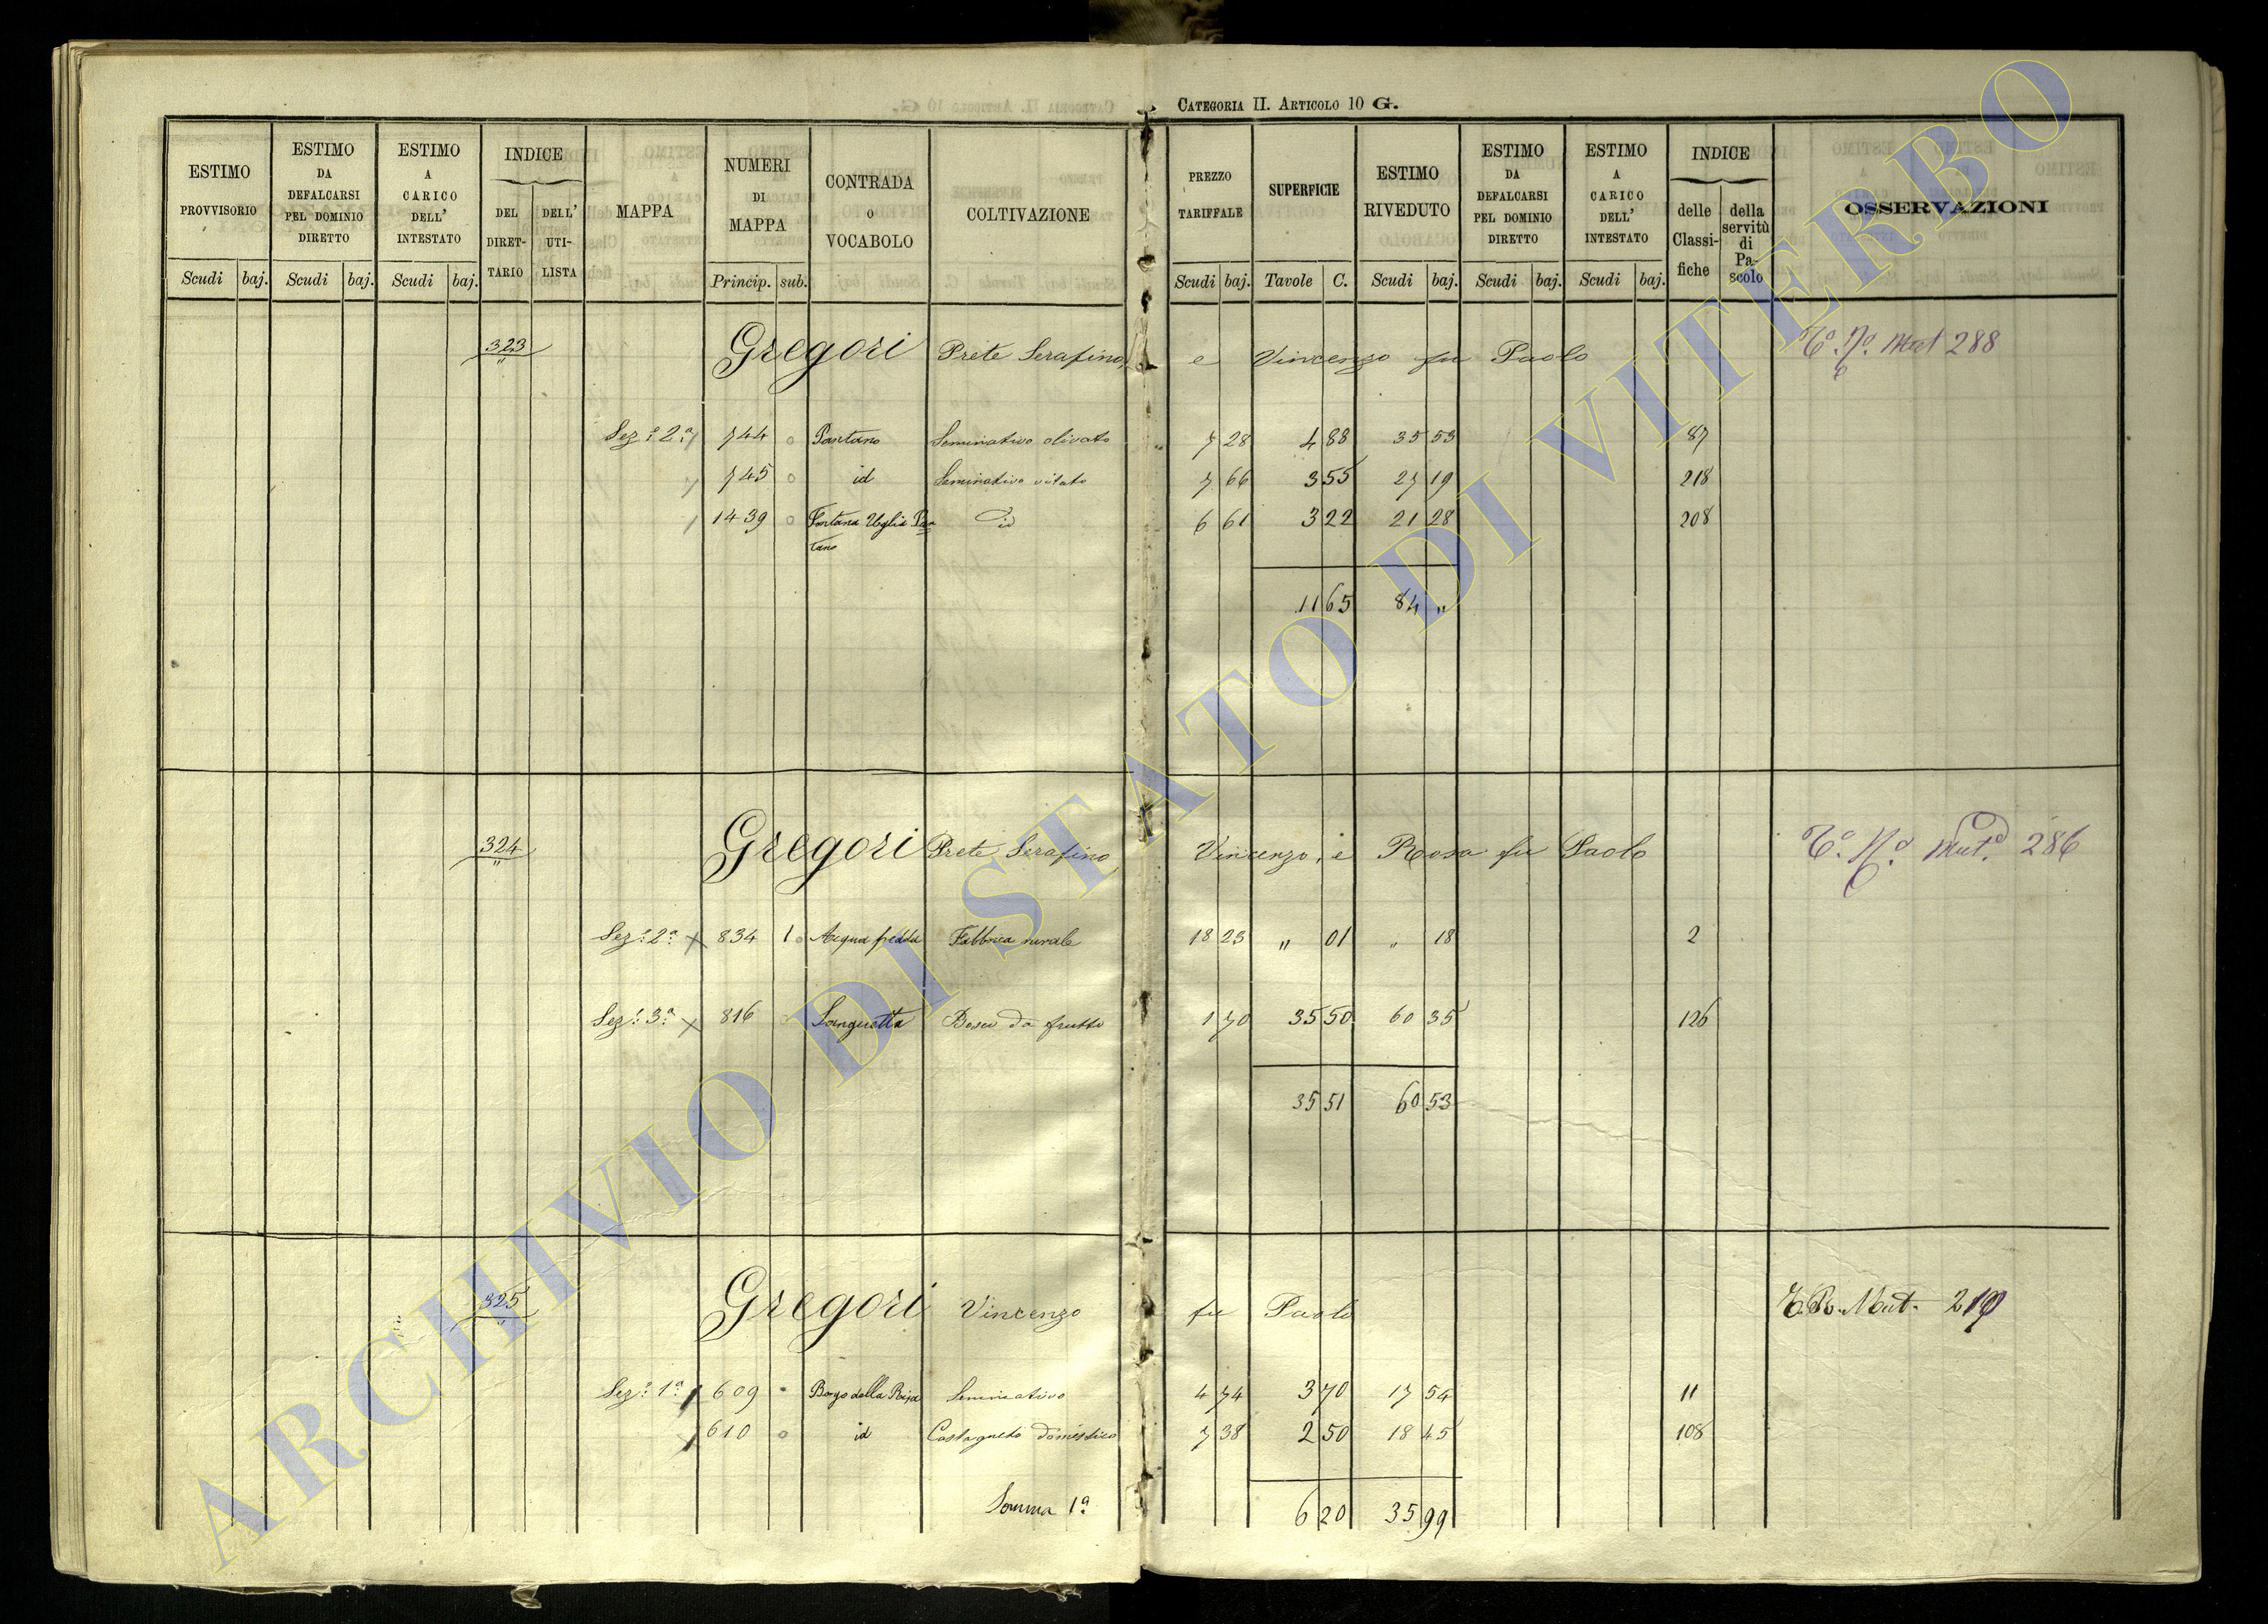 CATEGORIA II. ARTICOLO 10 G.
ESTIMO PROVVISORIO
ESTIMO DA DEFALCARSI PEL DOMINIO DIRETTO
ESTIMO A CARICO DELL' INTESTATO
INDICE
DEL DIRETTARIO
DELL' UTILISTA
MAPPA
NUMERI DI MAPPA
CONTRADA O VOCABOLO
COLTIVAZIONE
PREZZO TARIFFALE
SUPERFICIE
ESTIMO RIVEDUTO
ESTIMO DA DEFALCARSI PEL DOMINIO DIRETTO
ESTIMO A CARICO DELL' INTESTATO
INDICE
delle Classifiche
della servitù di Pascolo
OSSERVAZIONI
Scudi baj. Scudi baj. Scudi baj. Princip. sub. Scudi baj. Tavole C. Scudi baj. Scudi baj. Scudi baj.
323 Gregori Prete Serafino, e Vincenzo fu Paolo 288
Sez.e 2.a 744 0 Pantano Seminativo olivato 7 28 4 88 35 53 87
745 0 id Seminativo vitato 7 66 3 55 27 19 218
1439 0 Fontana Uglia Pantano id 6 61 3 22 21 28 208
11 65 84 "
324 Gregori Prete Serafino Vincenzo, e Rosa fu Paolo 286
Sez.e 2.a 834 1 0 Acqua fredda Fabbrica rurale 18 23 " 01 " 18 2
Sez.e 3.a 816 Sanguetta Bosco da frutto 1 70 35 50 60 35 126
35 51 60 53
325 Gregori Vincenzo fu Paolo Mut.
Sez.e 1.a 609 Borgo della Ripa Seminativo 4 74 3 70 17 54 11
610 0 id Castagneto domestico 7 38 2 50 18 45 108
Somma 1.a 6 20 35 99
ARCHIVIO DI STATO DI VITERBO